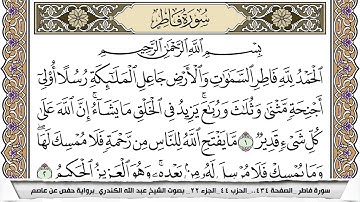 سورة فاطر
بِسْمِ اللَّهِ الرَّحْمَٰنِ الرَّحِيمِ
الْحَمْدُ لِلَّهِ فَاطِرِ السَّمَٰوَٰتِ وَالْأَرْضِ جَاعِلِ الْمَلَٰٓئِكَةِ رُسُلًا أُو۟لِىٓ
أَجْنِحَةٍ مَّثْنَىٰ وَثُلَٰثَ وَرُبَٰعَ يَزِيدُ فِى الْخَلْقِ مَا يَشَآءُ إِنَّ اللَّهَ عَلَىٰ
كُلِّ شَىْءٍ قَدِيرٌ ١ مَّا يَفْتَحِ اللَّهُ لِلنَّاسِ مِن رَّحْمَةٍ فَلَا مُمْسِكَ لَهَا
وَمَا يُمْسِكْ فَلَا مُرْسِلَ لَهُۥ مِنۢ بَعْدِهِۦ وَهُوَ الْعَزِيزُ الْحَكِيمُ ٢
سورة فاطر _ الصفحة ٤٣٤.. الحزب ٤٤_الجزء ٢٢_ بصوت الشيخ عبد الله الكندري _ برواية حفص عن عاصم